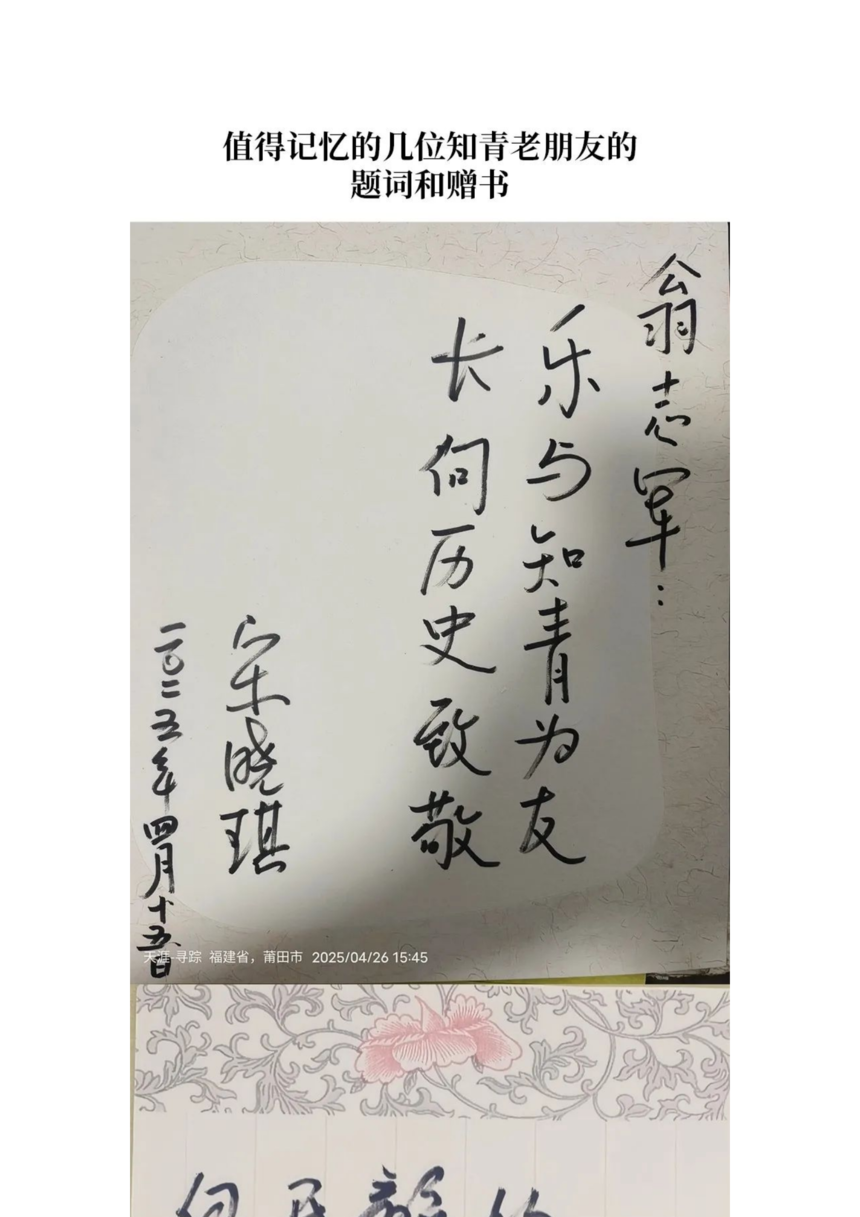 值得记忆的几位知青老朋友的
题词和赠书
翁志军：
乐与知青为友
长向历史致敬
宋晓琪
二〇二五年四月十五日
天涯·寻踪 福建省，莆田市 2025/04/26 15:45